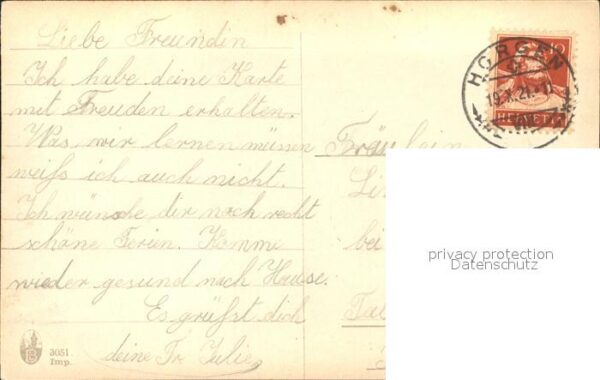 Liebe Freundin
Ich habe deine Karte
mit Freuden erhalten.
Was wir lernen müssen
weiß ich auch nicht.
Ich wünsche dir noch recht
schöne Ferien. Komme
wieder gesund nach Hause.
Es grüßt dich
deine Fr. Julie.
Fräulein
bei
HORGEN
19.X.21.-11
HELVETIA
privacy protection
Datenschutz
3051
Imp.